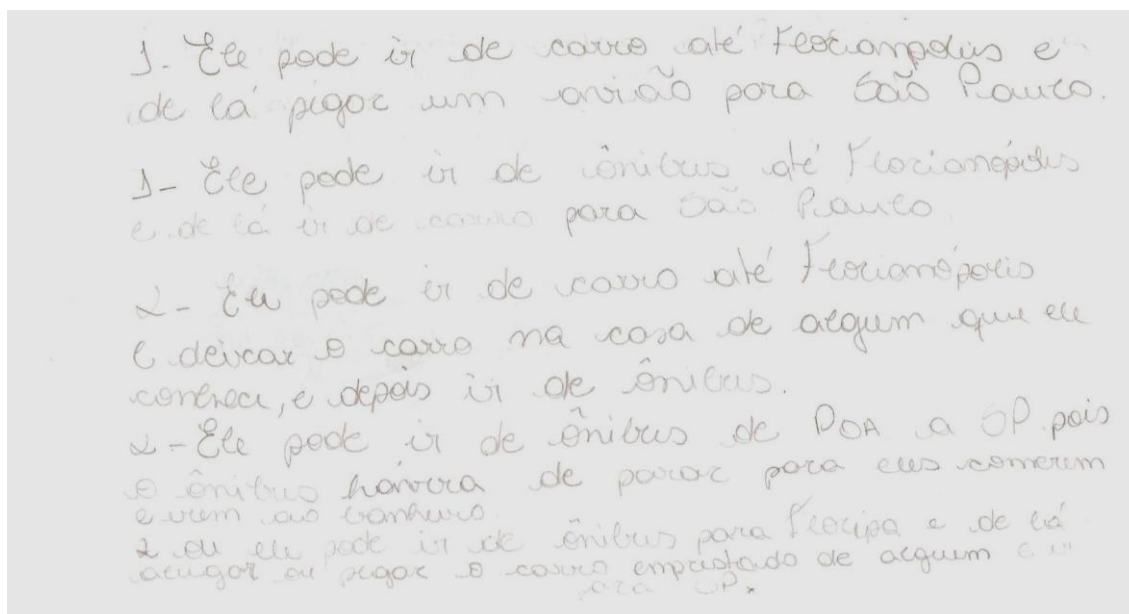 1. Ele pode ir de carro até Florianpolis e
de lá pegar um avião para São Paulo.
1- Ele pode ir de ônibus até Florianópolis
e de lá ir de carro para São Paulo
2- Ele pode ir de carro até Florianópolis
e deixar o carro na casa de algum que ele
conheça, e depois ir de ônibus.
2- Ele pode ir de ônibus de POA a SP pois
o ônibus havera de parar para eles comerem
e irem ao banheiro.
2 ou ele pode ir de ônibus para Floripa e de lá
alugar ou pegar o carro emprestado de alguem e ir
para SP.